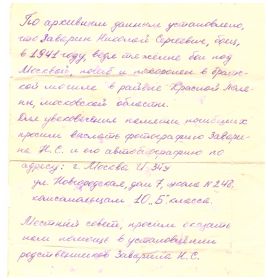 По архивным данным установлено,
что Заварин Николай Сергеевич, боец,
в 1941 году, ведя тяжелые бои под
Москвой, погиб и похоронен в братс-
кой могиле в районе Красной Поля-
ны, московской области.
Для увековечения памяти погибших
просим выслать фотографию Завари-
на Н.С. и его автобиографию по
адресу: г. Москва И-349
ул. Новгородская, дом 7, школа № 248,
комсомольцам 10 "Б" класса.
Местный совет, просим оказать
нам помощь в установлении
родственников Заварина Н.С.